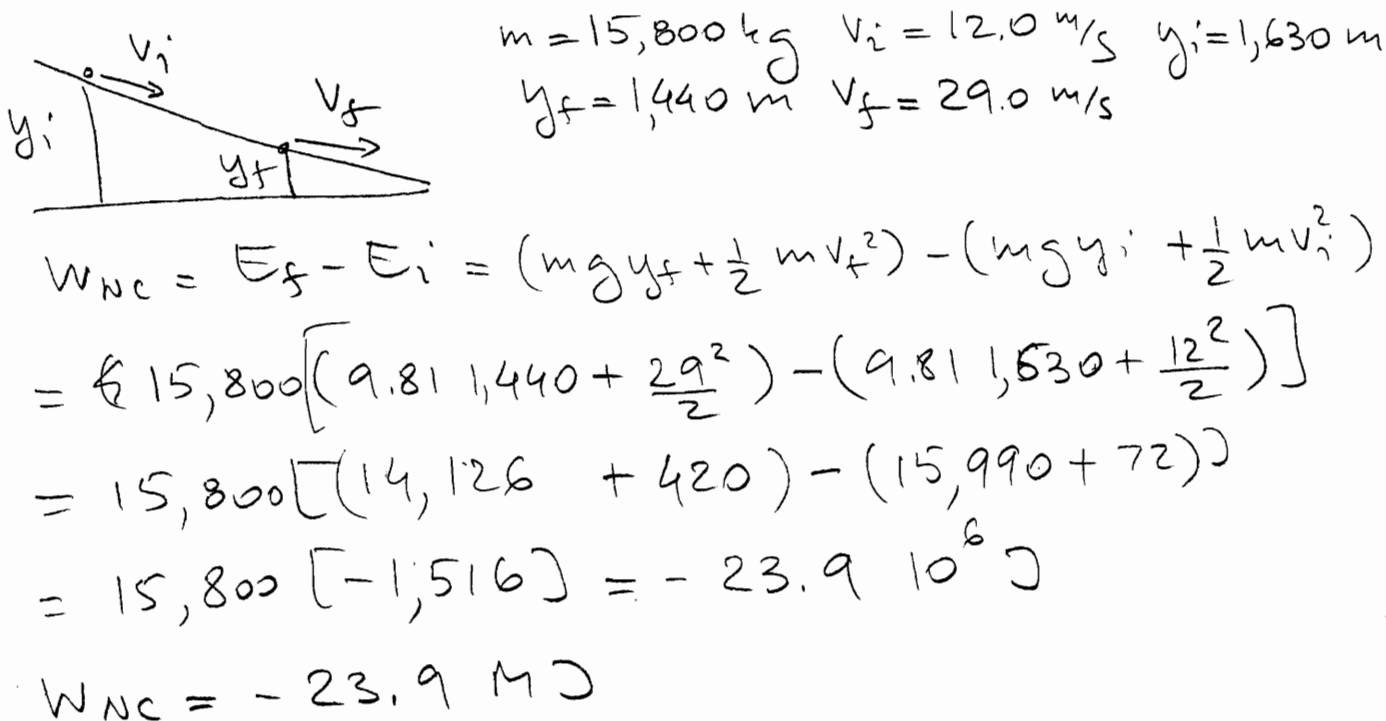 m = 15,800 kg  v_i = 12.0 m/s  y_i = 1,630 m
y_f = 1,440 m  v_f = 29.0 m/s
v_i
v_f
y_i
y_f
W_NC = E_f - E_i = (m g y_f + 1/2 m v_f²) - (m g y_i + 1/2 m v_i²)
= 15,800 [(9.81 1,440 + 29²/2) - (9.81 1,630 + 12²/2)]
= 15,800 [(14,126 + 420) - (15,990 + 72)]
= 15,800 [-1,516] = - 23.9 10⁶ J
W_NC = - 23.9 MJ